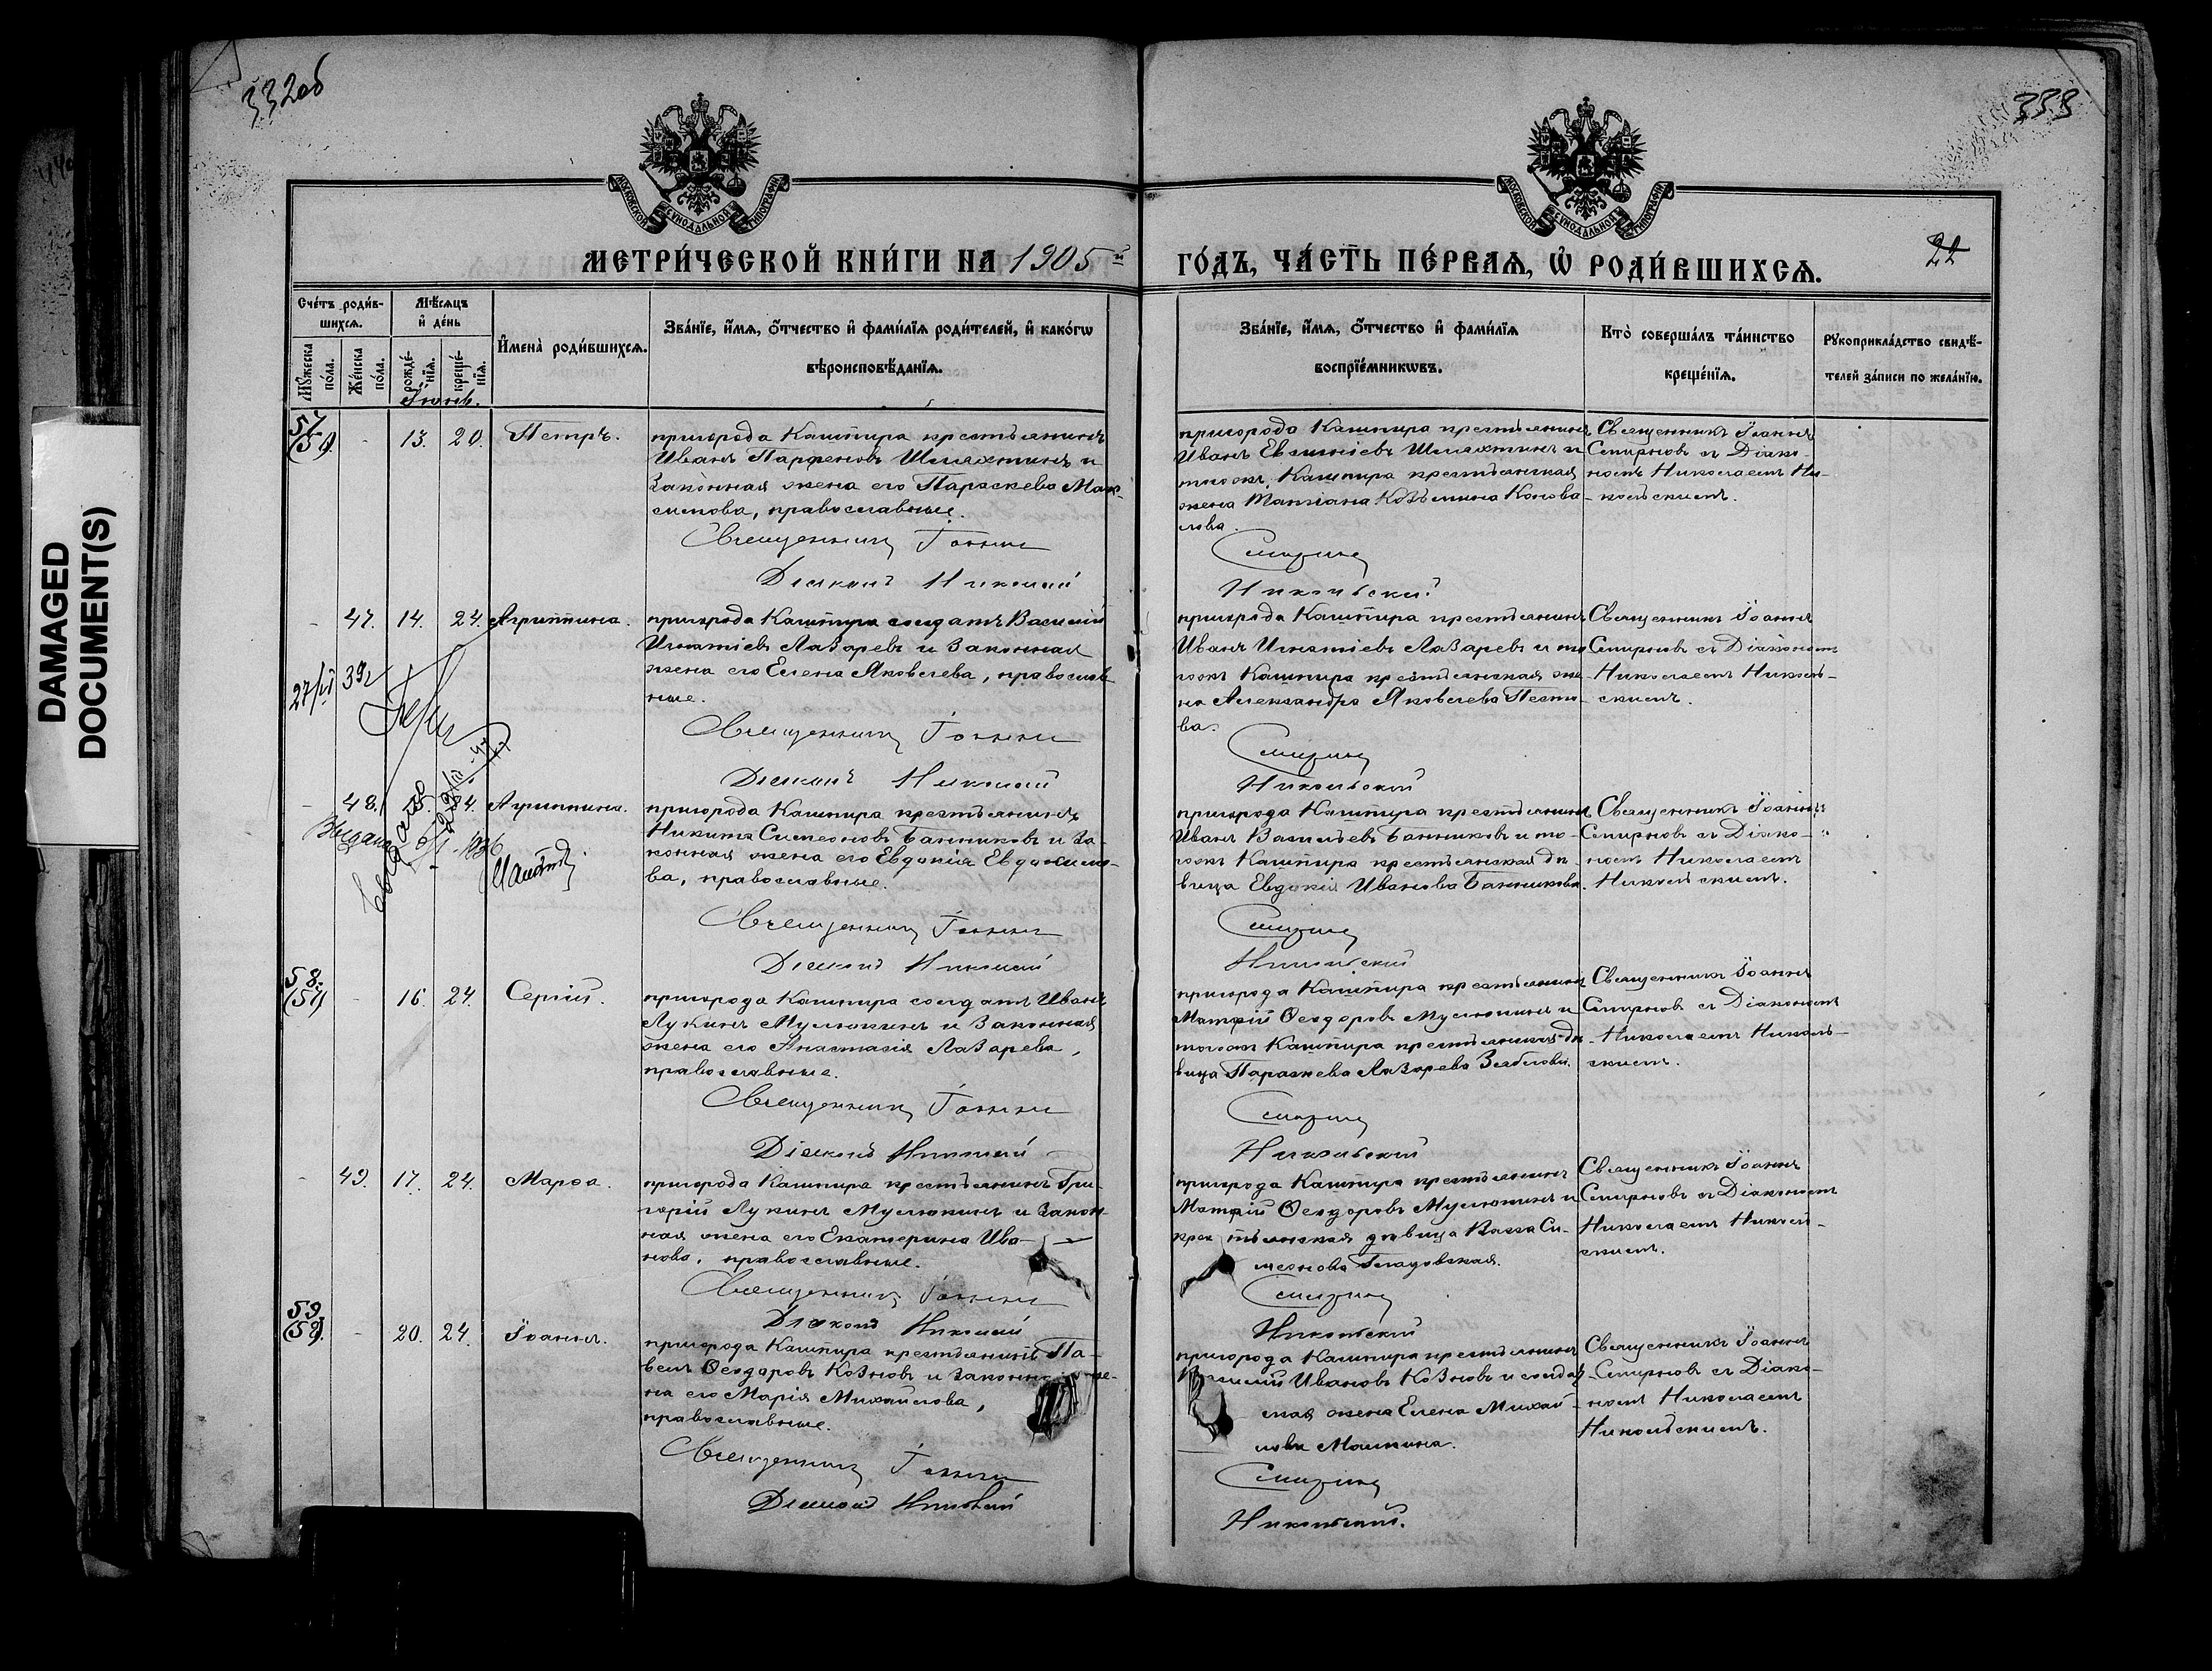 332об
333
МОСКОВСКОЙ СѴНОДАЛЬНОЙ ТИПОГРАФІИ
МОСКОВСКОЙ СѴНОДАЛЬНОЙ ТИПОГРАФІИ
МЕТРИ́ЧЕСКОЙ КНИ́ГИ НА 1905й
ГО́ДЪ, ЧА́СТЬ ПЕ́РВАѦ, Ѡ҆ РОДИ́ВШИХСѦ.
22
Сче́тъ роди́в-
шихсѧ.
Мѣ́сѧцъ
и҆ де́нь
Мꙋ́жеска по́ла.
Же́нска по́ла.
рожде́-нїѧ.
креще́-нїѧ.
И҆мена̀ роди́вшихсѧ.
Зва́нїе, и҆́мѧ, ѻ҆́тчество и҆ фами́лїѧ роди́телей, и҆ како́гѡ
вѣроисповѣ́данїѧ.
Зва́нїе, и҆́мѧ, ѻ҆́тчество и҆ фами́лїѧ
воспрїе́мникѡвъ.
Кто̀ соверша́лъ та́инство
креще́нїѧ.
Рꙋкоприкла́дство свидѣ́-
телей за́писи по жела́нїю.
Іюнь.
57
(56)
-
13.
20.
Петръ.
пригорода Кашпира крестьянинъ
Иванъ Парфеновъ Шляхтинъ и
законная жена его Параскева Мак-
симова, православные.
Священникъ Іоаннъ
Діаконъ Николай
пригорода Кашпира крестьянинъ
Иванъ Евгеніевъ Шляхтинъ и
того-же Кашпира крестьянская
жена Татіана Козьмина Конова-
лова.
Смирновъ
Никольскій.
Священникъ Іоаннъ
Смирновъ съ Діако-
номъ Николаемъ Ни-
кольскимъ.
-
47.
14.
24.
Агриппина.
пригорода Кашпира солдатъ Василій
Игнатіевъ Лазаревъ и законная
жена его Елена Яковлева, православ-
ные.
Священникъ Іоаннъ
Діаконъ Николай
пригорода Кашпира крестьянинъ
Иванъ Игнатіевъ Лазаревъ и то-
гоже Кашпира крестьянская же-
на Александра Яковлева
ва.
Смирновъ
Никольскій
Священникъ Іоаннъ
Смирновъ съ Діакономъ
Николаемъ Николь-
скимъ.
27/VI 39г
-
48.
15.
24.
Агриппина.
пригорода Кашпира крестьянинъ
Никита Симеоновъ Банниковъ и за-
конная жена его Евдокія Евдокимо-
ва, православные.
Священникъ Іоаннъ
Діаконъ Николай
пригорода Кашпира крестьянинъ
Иванъ Васильевъ Банниковъ и то-
гоже Кашпира крестьянская дѣ-
вица Евдокія Иванова Банникова.
Смирновъ
Никольскій
Священникъ Іоаннъ
Смирновъ съ Діако-
номъ Николаемъ
Никольскимъ.
58.
(57)
-
16.
24.
Сергій.
пригорода Кашпира солдатъ Иванъ
Лукинъ Мулюкинъ и законная
жена его Анастасія Лазарева,
православные.
Священникъ Іоаннъ
Діаконъ Николай
пригорода Кашпира крестьянинъ
Матфій Ѳеодоровъ Мулюкинъ и
тогоже Кашпира крестьянская дѣ-
вица Параскева Лазарева
Смирновъ
Никольскій
Священникъ Іоаннъ
Смирновъ съ Діакономъ
Николаемъ Николь-
скимъ.
-
49.
17.
24.
Марѳа.
пригорода Кашпира крестьянинъ Гри-
горій Лукинъ Мулюкинъ и закон-
ная жена его Екатерина Ива-
нова, православные.
Священникъ Іоаннъ
Діаконъ Николай
пригорода Кашпира крестьянинъ
Матфій Ѳеодоровъ Мулюкинъ и
крестьянская дѣвица Васса Си-
меонова
Смирновъ
Никольскій
Священникъ Іоаннъ
Смирновъ съ Діакономъ
Николаемъ Николь-
скимъ.
59.
(58).
-
20.
24.
Іоаннъ.
пригорода Кашпира крестьянинъ Па-
велъ Ѳеодоровъ Козновъ и законная же-
на его Марія Михайлова,
православные.
Священникъ Іоаннъ
Діаконъ Николай
пригорода Кашпира крестьянинъ
Ивановъ Козновъ и солдат-
ская жена Елена Михай-
лова Машкина.
Смирновъ
Никольскій.
Священникъ Іоаннъ
Смирновъ съ Діако-
номъ Николаемъ
Никольскимъ.
DAMAGED
DOCUMENT(S)